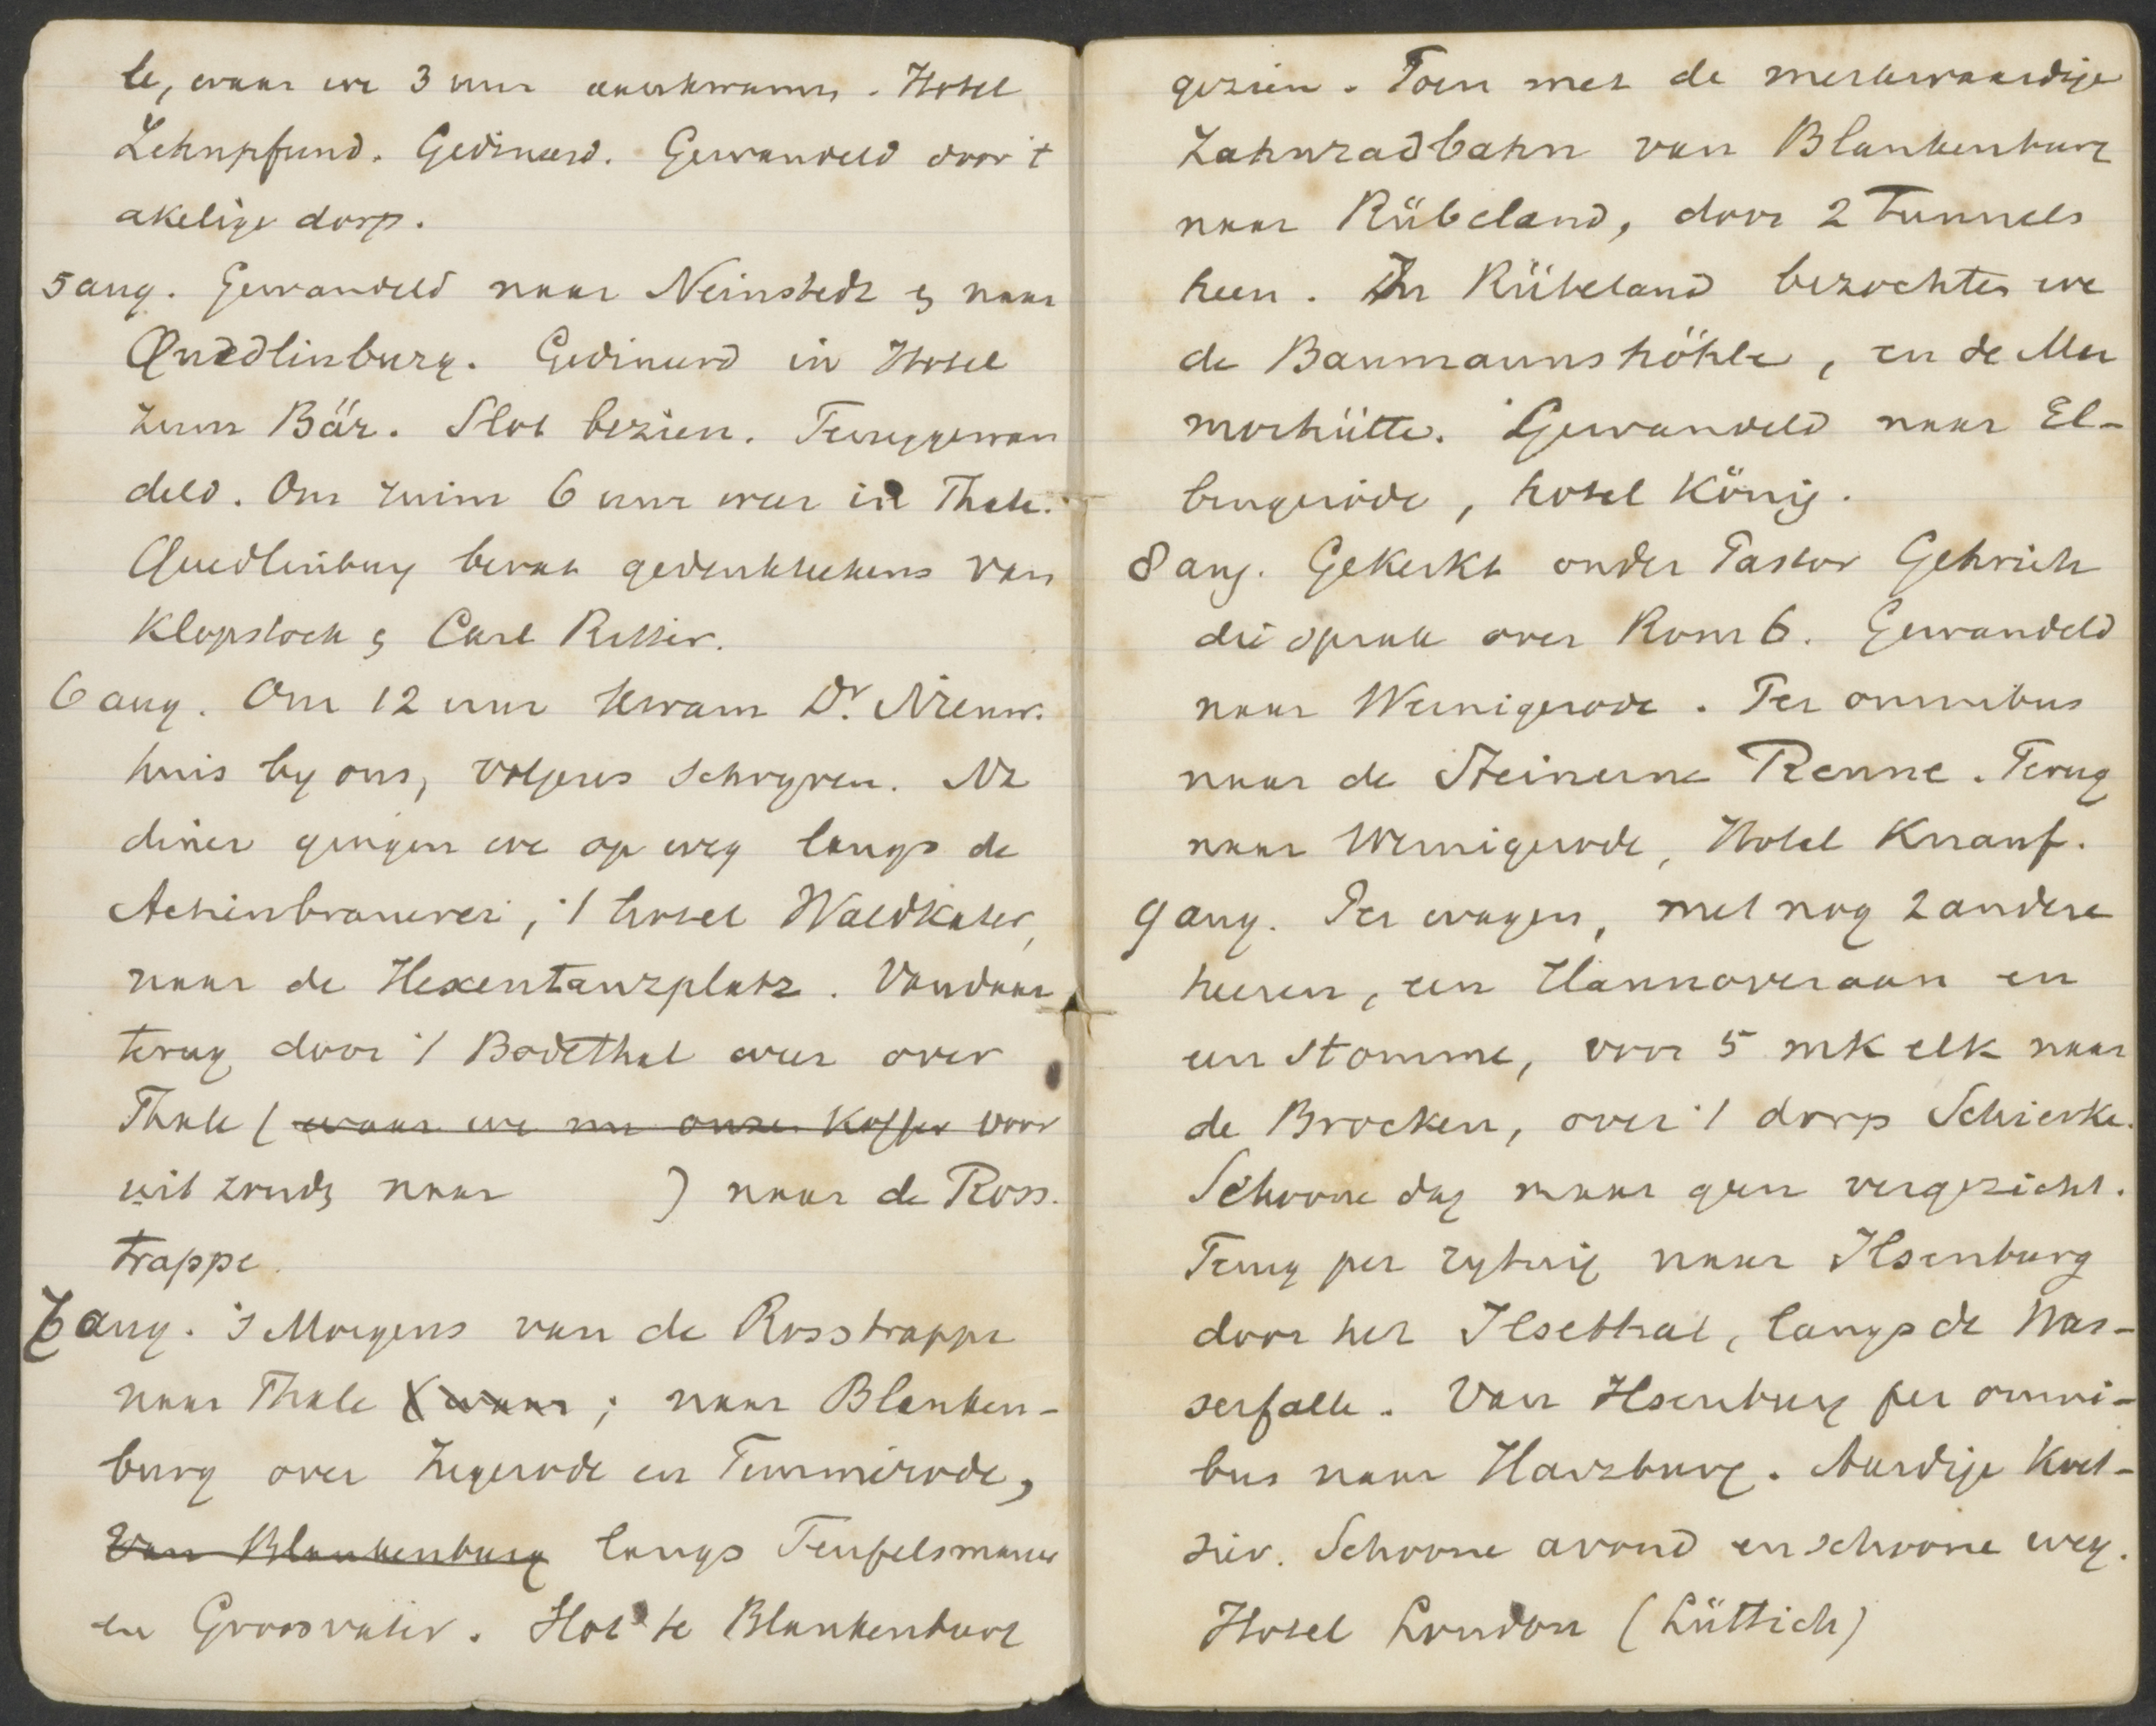 le, waar we 3 uur aankwamen. Hotel
Zehnpfund. Gedineerd. Gewandeld door 't
akelige dorp.
5 aug. Gewandeld naar Neinstedt & naar
Quedlinburg. Gedineerd in Hotel
zum Bär. Slot bezien. Teruggewan
deld. Om ruim 6 uur weer in Thale.
Quedlinburg bevat gedenkteekens van
Klopstock & Carl Ritter.
6 aug. Om 12 uur kwam Dr. Nieuw.
huis by ons, volgens schryven. Na
diner gingen we op weg langs de
Actienbrauerei, 't hotel Waldkater,
naar de Hexentanzplatz. Vandaar
terug door 't Bodethal weer over
Thale (waar we nu onze koffer voor
uit zonden naar ) naar de Ross.
trappe.
7 aug. 's Morgens van de Rosstrappe
naar Thale (waar ; naar Blanken-
burg over Wegerode en Timmerode,
Van Blankenburg langs Teufelsmauer
en Groosvater. Slot te Blankenburg
gezien. Toen met de merkwaardige
Zahnradbahn van Blankenburg
naar Rübeland, door 2 tunnels
heen. In Rübeland bezochten we
de Baumannshöhle, en de Mar
morhütte. Gewandeld naar El-
bingerode, hotel König.
8 aug. Gekerkt onder Pastor Gehrich
die sprak over Rom 6. Gewandeld
naar Wernigerode. Per omnibus
naar de Steinerne Renne. Terug
naar Wernigerode, Hotel Knauf.
9 aug. Per wagen, met nog 2 andere
heeren, een Hannoveraan en
een stomme, voor 5 mk elk naar
de Brocken, over 't dorp Schierke.
Schoone dag maar geen vergezicht.
Terug per rytuig naar Ilsenburg
door het Ilsethal, langs de Was-
serfälle. Van Ilsenburg per omni-
bus naar Harzburg. Aardige koet-
sier. Schoone avond en schoone weg.
Hotel London (Lüttich)